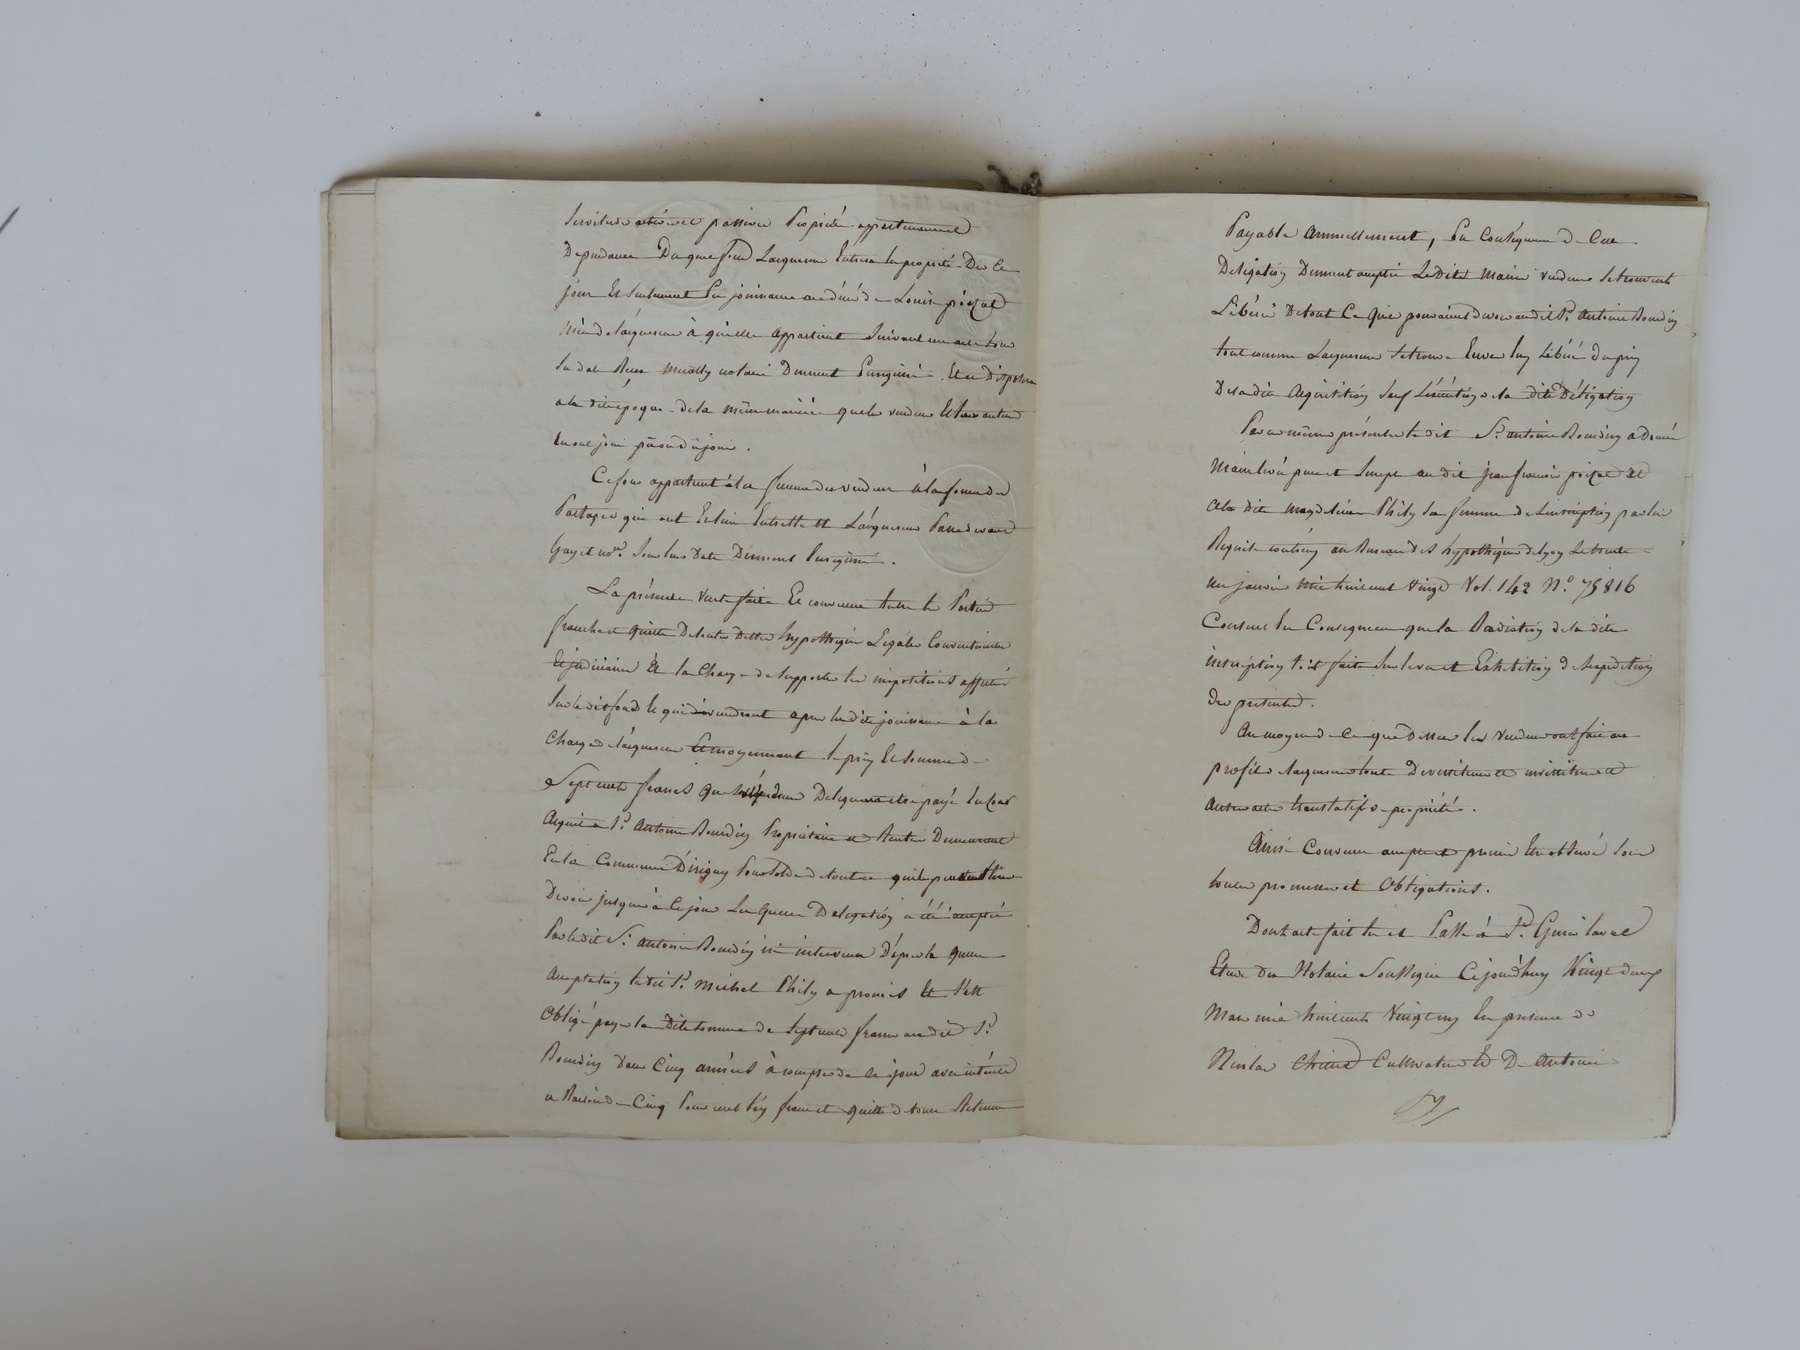 Servitude active et passive Propriété appartenance et
Dependance Du quel fond Lacquereur Entrera En propriété Des Ce
jour Et Seulement En jouissance au décéd de Louise poizat
Mère de lacquereur à qui elle appartient Suivant un acte Sous
Sa date Reçu notaire Dument Enregistré. Et en Disposera
a la ditte époque de la même manière que les vendeurs
En ont joui par ou dû jouir.
Ce fond appartient à la femme des vendeurs à la forme du
Partage qui eut Lieu Entre Elle et Lacquereur Pardevant
Gay et nore. Sous Leur Date Dument Enregistré.
La présente Vente faite Et convenue Entre les Parties
franche et quitte De toutes Dettes hypothèques Légales Conventionnelles
Et judiciaires Et a la Charge de Supporter les impositions affectées
Sur le dit fond le qui deviendront apres la dite jouissance à la
Charge de lacquereur Et moyennant le prix Et Somme de
Sept cents francs que Les vendeurs Deleguent etre payé En Leur
Acquit a Sr. Antoine Bourdin Propriétaire et Rentier Demeurant
En la Commune D'irigny Pour Solde de tout ce qu'ils peuvent Lui
Devoir jusqu'à Ce jour La quelle Delegation a été acceptée
Par le dit Sr. Antoine Bourdin ici intervenu D'apres la quelle
Acceptation le dit Sr. Michel Phily a promis Et S'est
Obligé payer la Ditte Somme de Sept cents francs au dit Sr.
Bourdin Dans Cinq années à compter de ce jour avec intérêts
a Raison de Cinq Pour cent L'an franc et quitte de toute Retenue
Payable Annuellement, En Conséquence De Cette
Delegation Dument acceptée Les Dits Mariés vendeurs Se trouvent
Libérés De tout Ce que pouvaient devoir au dit Sr. Antoine Bourdin
tout comme Lacquereur Se trouve Envers Eux Libéré du prix
De la dite Acquisition Sauf L'exécution de la ditte Délégation
Par ces mêmes présentes le dit Sr. antoine Bourdin a Donné
Mainlevée pure et Simple au dit jean françois poizat et
a la dite magdelaine Phily Sa femme de Linscription par lui
Requise contre eux au Bureau des hypothèques de lyon Le trente
un janvier mil huit cent vingt Vol. 142 No. 75816
Consent En Conséquence que la Radiation de la dite
inscription Soit faite Sur le vu et Exhibition d'Expédition
des présentes.
Au moyen de Ce que Dessus les vendeurs ont fait au
profit de lacquereur toute Devestiture et investiture et
autres actes translatifs de propriété.
Ainsi Convenu accepté et promis Etre observé Sous
toutes promesses et Obligations.
Dont acte fait lu et Passé à St. Genis laval
Etude du Notaire Soussigné Cejourd'huy Vingt deux
Mars mil huit cents Vingt un En presence de
Nicolas Cultivateur Et De Antoine